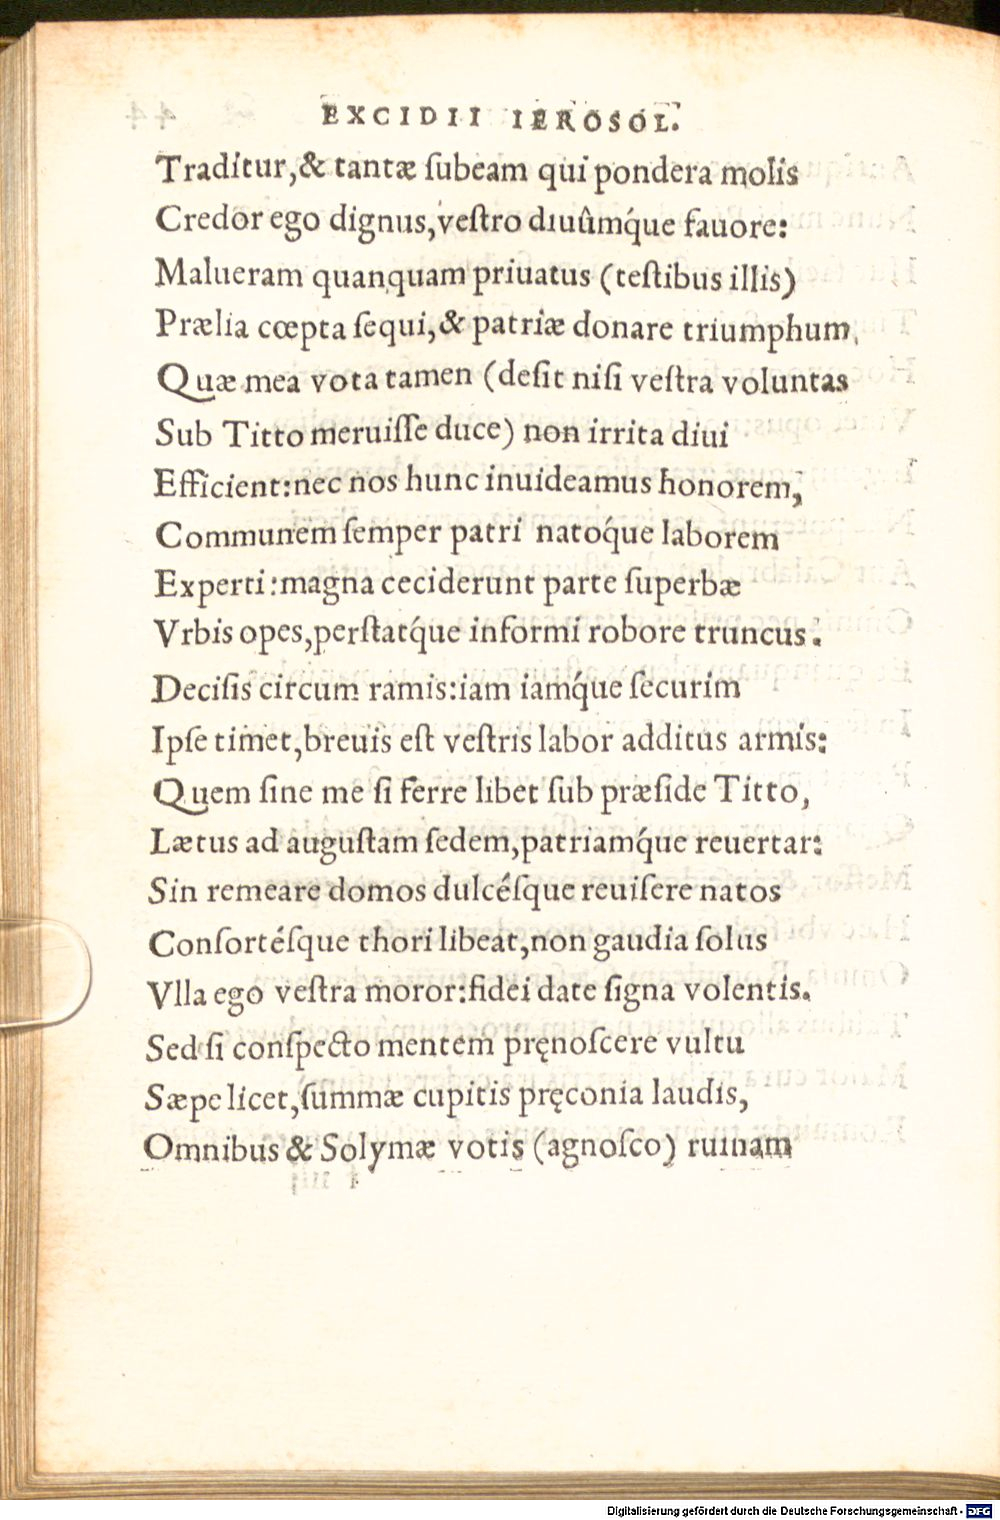 EXCIDII IEROSOL.
Traditur,& tantæ ſubeam qui pondera molis
Credor ego dignus,veſtro diuûmq́ue fauore:
Malueram quanquam priuatus (teſtibus illis)
Prælia cœpta ſequi,& patriæ donare triumphum,
Quæ mea vota tamen (deſit niſi veſtra voluntas
Sub Titto meruiſſe duce) non irrita diui
Efficient:nec nos hunc inuideamus honorem,
Communem ſemper patri natoq́ue laborem
Experti:magna ceciderunt parte ſuperbæ
Vrbis opes,perſtatq́ue informi robore truncus.
Deciſis circum ramis:iam iamq́ue ſecurim
Ipſe timet,breuis eſt veſtris labor additus armis:
Quem ſine me ſi ferre libet ſub præſide Titto,
Lætus ad auguſtam ſedem,patriamq́ue reuertar:
Sin remeare domos dulcéſque reuiſere natos
Conſortéſque thori libeat,non gaudia ſolus
Vlla ego veſtra moror:fidei date ſigna volentis.
Sed ſi conſpecto mentem pręnoſcere vultu
Sæpe licet,ſummæ cupitis pręconia laudis,
Omnibus & Solymæ votis (agnoſco) ruinam
Digitalisierung gefördert durch die Deutsche Forschungsgemeinschaft - DFG